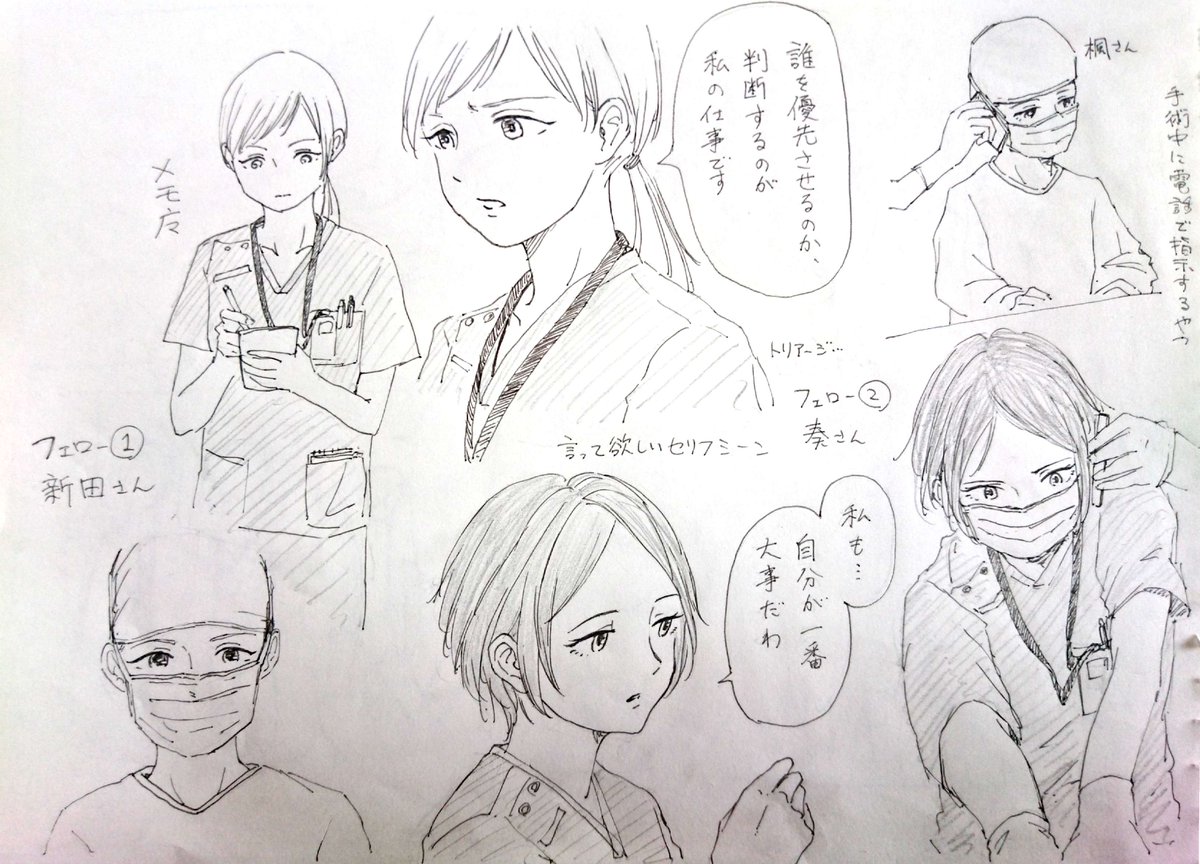 メモ広
フェロー①
新田さん
誰を優先させるのか、
判断するのが
私の仕事です
トリアージ…
言って欲しいセリフシーン
フェロー②
奏さん
私も…
自分が一番
大事だわ
楓さん
手術中に電話で指示するやつ